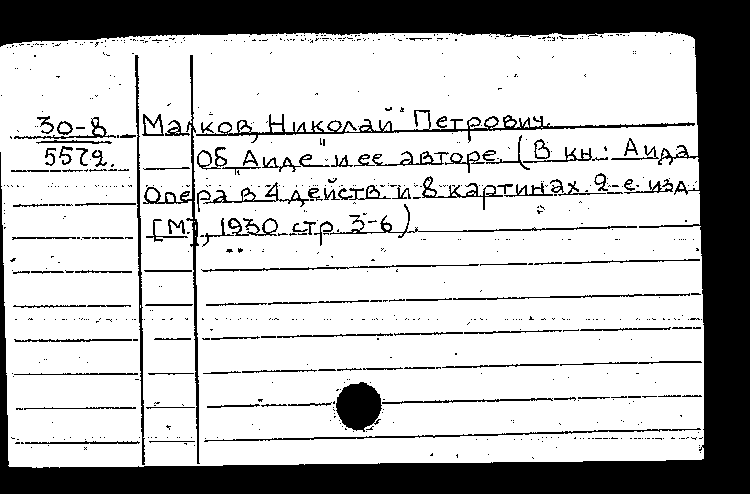 30-8
5572.
Малков, Николай Петрович.
Об "Аиде" и ее авторе. (В кн.: Аида
Опера в 4 действ. и 8 картинах. 2-е изд.
[М], 1930 стр. 3-6).